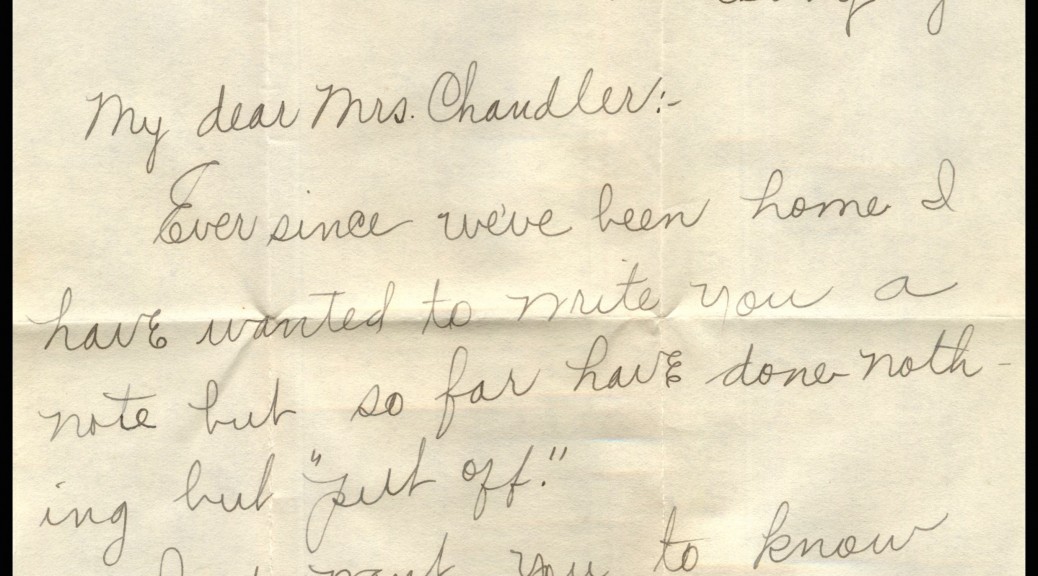 My dear Mrs. Chandler:-
Ever since we've been home I
have wanted to write you a
note but so far have done noth-
ing but "put off."
I want you to know